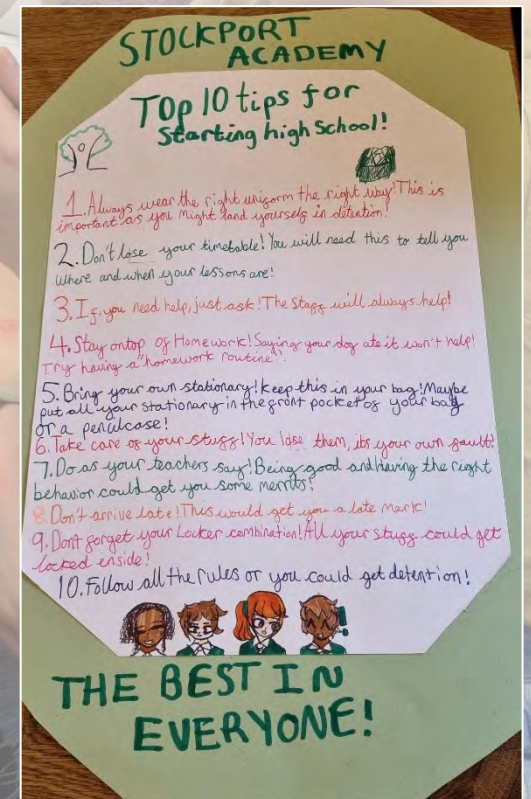 STOCKPORT
ACADEMY
Top 10 tips for
Starting high School!
1. Always wear the right uniform the right way! This is
important as you Might land yourself in detention!
2. Don't lose your timetable! You will need this to tell you
where and when your lessons are!
3. If you need help, just ask! The Staff will always help!
4. Stay ontop of Homework! Saying your dog ate it won't help!
Try having a "homework routine".
5. Bring your own stationary! Keep this in your bag! Maybe
put all your stationary in the front pocket of your bag
or a pencilcase!
6. Take care of your stuff! You lose them, its your own fault!
7. Do as your teachers say! Being good and having the right
behavior could get you some merits!
8. Don't arrive late! This would get you a late mark!
9. Dont forget your Locker combination! All your stuff could get
locked inside!
10. Follow all the rules or you could get detention!
THE BEST IN
EVERYONE!